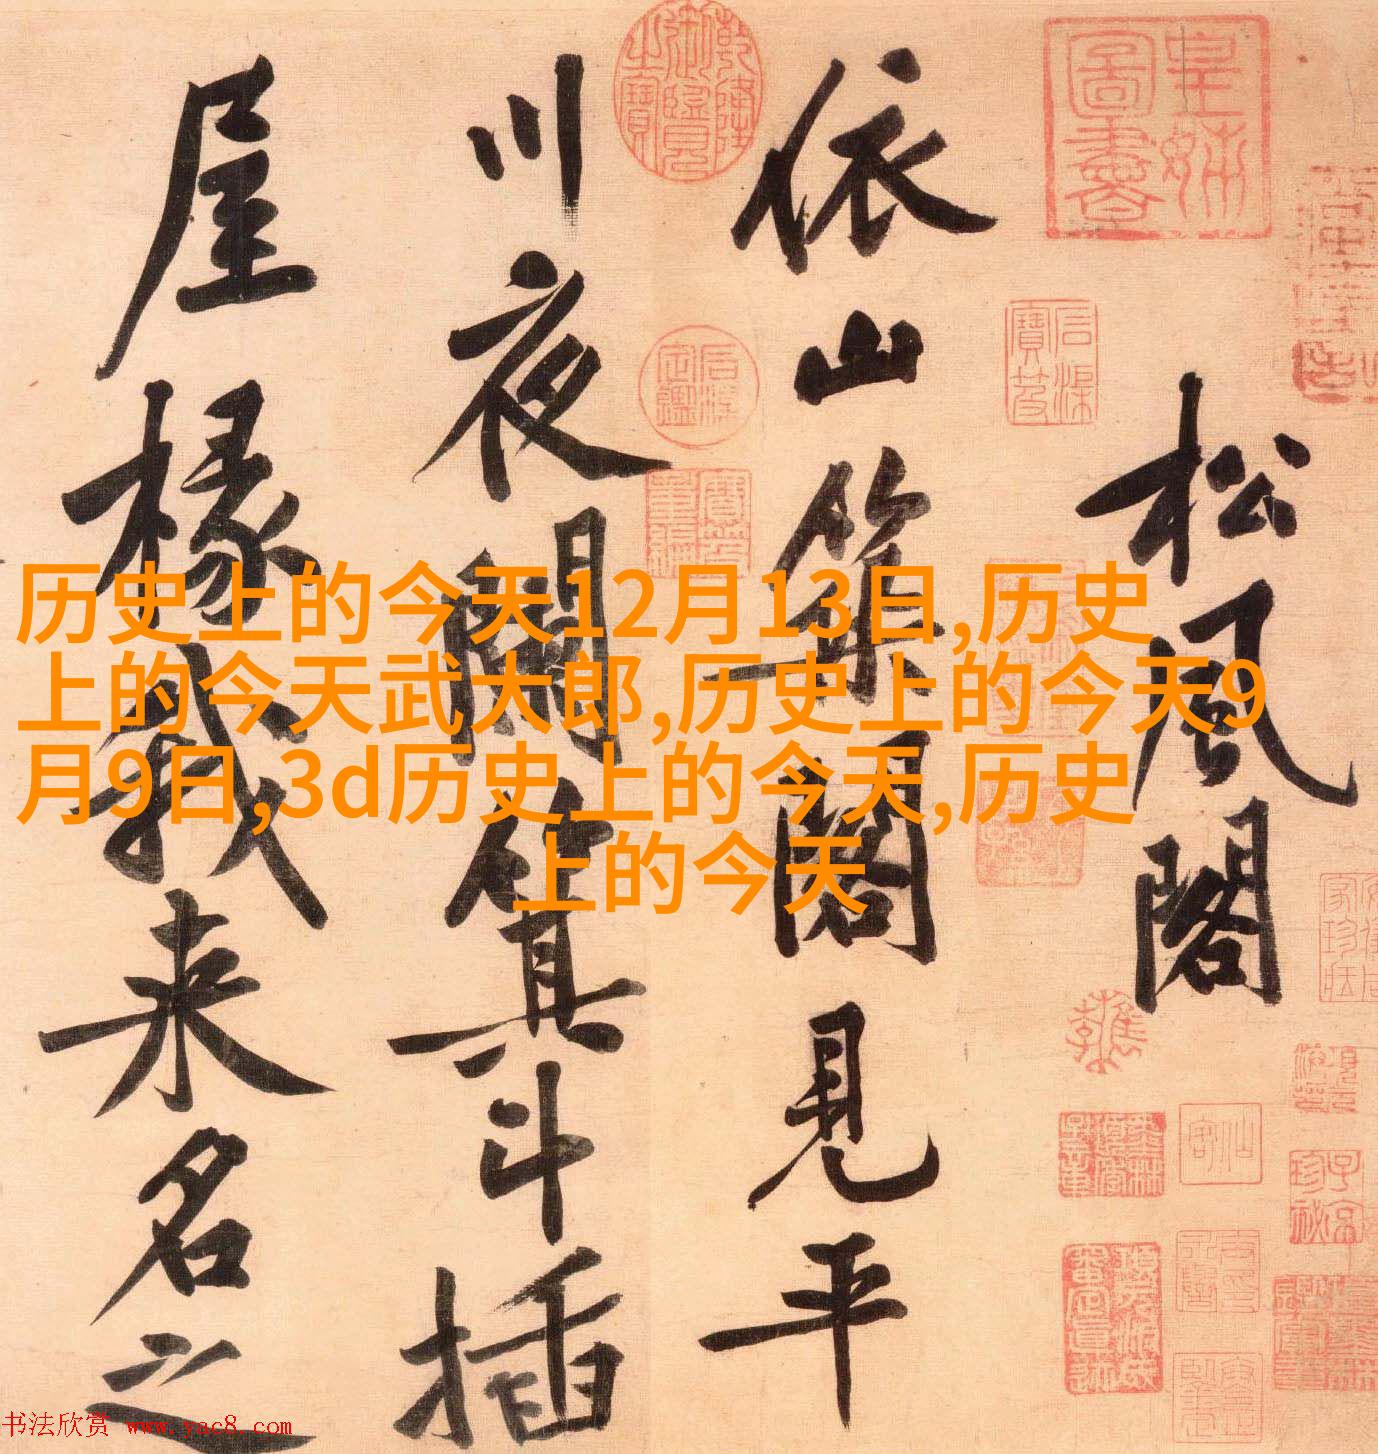 松風閣
依山築閣見平
川夜闌箕斗插
屋椽我来名之
历史上的今天12月13日,历史
上的今天武大郎,历史上的今天9
月9日,3d历史上的今天,历史
上的今天
书法欣赏 www.yac8.com